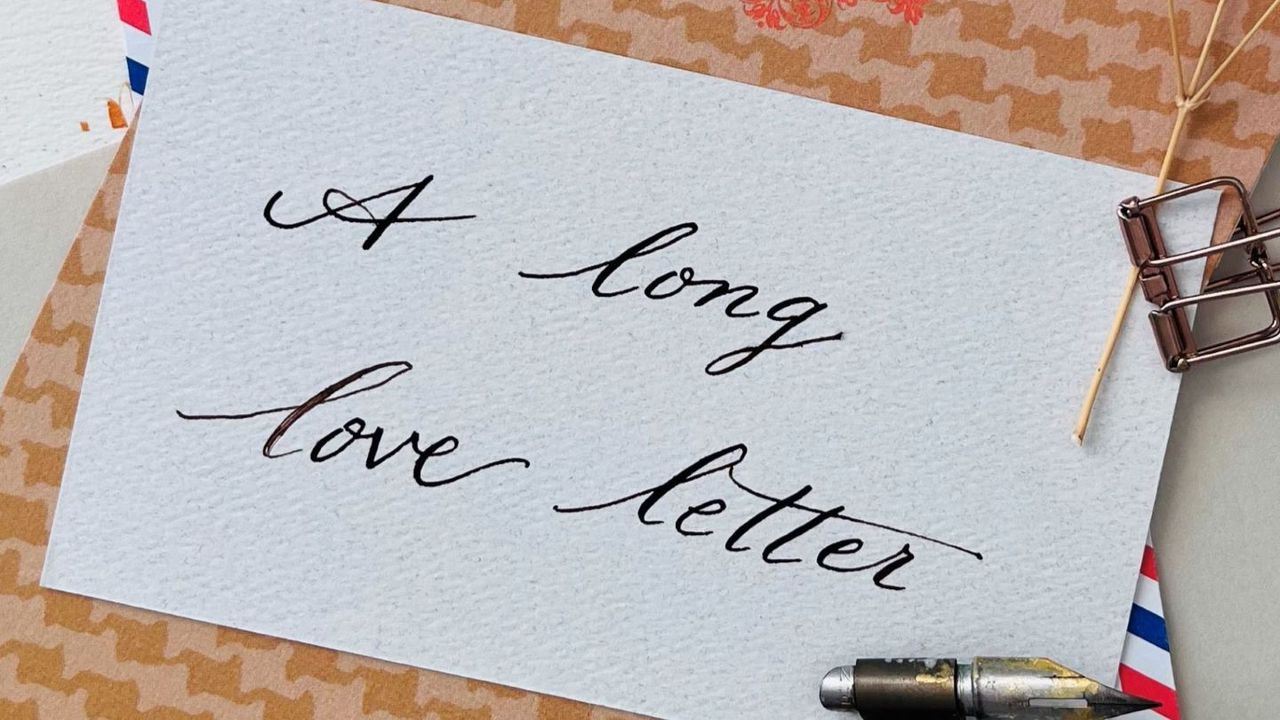 A long
love letter